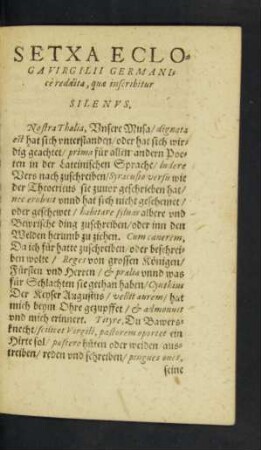 SETXA ECLO-
GA VIRGILII GERMANI-
cè reddita, quæ inscribitur
SILENVS.
Nostra Thalia, Unsere Musa / dignata
est hat sich unterstanden / oder hat sich wir-
dig geachtet / prima für allen andern Poe-
ten in der Lateinischen Sprache / ludere
Vers nach zuschreiben / Syracusio versu wie
der Theocritus sie zuvor geschrieben hat /
nec erubuit unnd hat sich nicht geschemet /
oder geschewet / habitare siluas albere und
Bewrische ding zuschreiben / oder inn den
Welden herumb zu ziehen. Cum canerem,
Da ich für hatte zuschreiben oder beschrei-
ben wolte / Reges von grossen Königen /
Fürsten und Herren / & prælia unnd was
für Schlachten sie gethan haben / Cynthius
Der Keyser Augustus / vellit aurem / hat
mich beym Ohre gezupffet / & admonuit
und mich erinnert. Tityre, Du Bawers-
knecht / scilicet Virgili, pastorem oportet ein
Hirte sol / pascere hüten oder weiden aus-
treiben / reden und schreiben / pingues oues,
seine